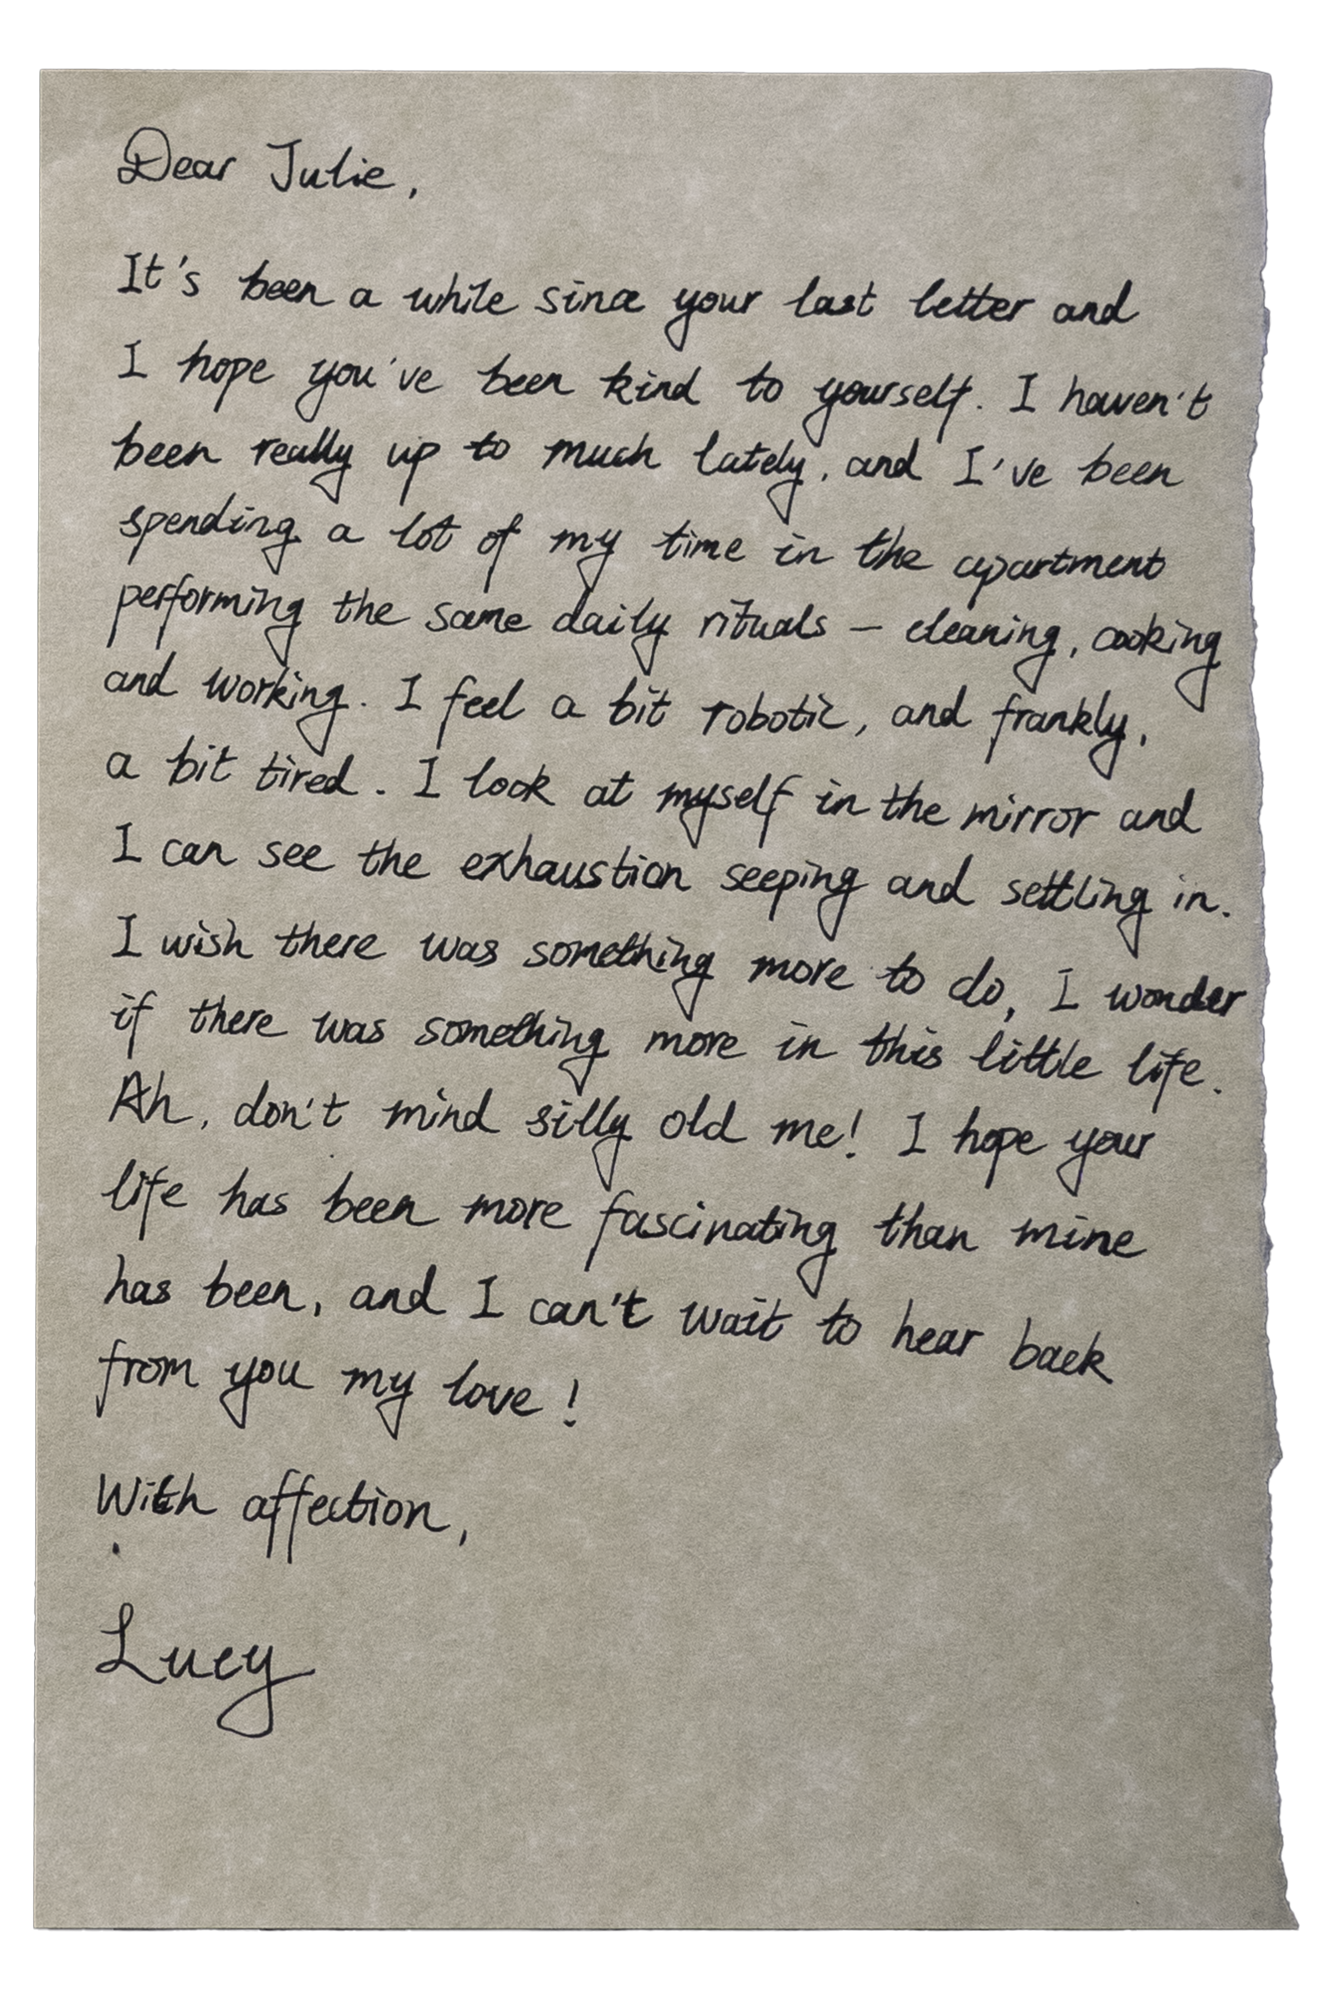 Dear Julie,
It's been a while since your last letter and
I hope you've been kind to yourself. I haven't
been really up to much lately, and I've been
spending a lot of my time in the apartment
performing the same daily rituals – cleaning, cooking
and working. I feel a bit robotic, and frankly,
a bit tired. I look at myself in the mirror and
I can see the exhaustion seeping and settling in.
I wish there was something more to do, I wonder
if there was something more in this little life.
Ah, don't mind silly old me! I hope your
life has been more fascinating than mine
has been, and I can't wait to hear back
from you my love!
With affection,
Lucy